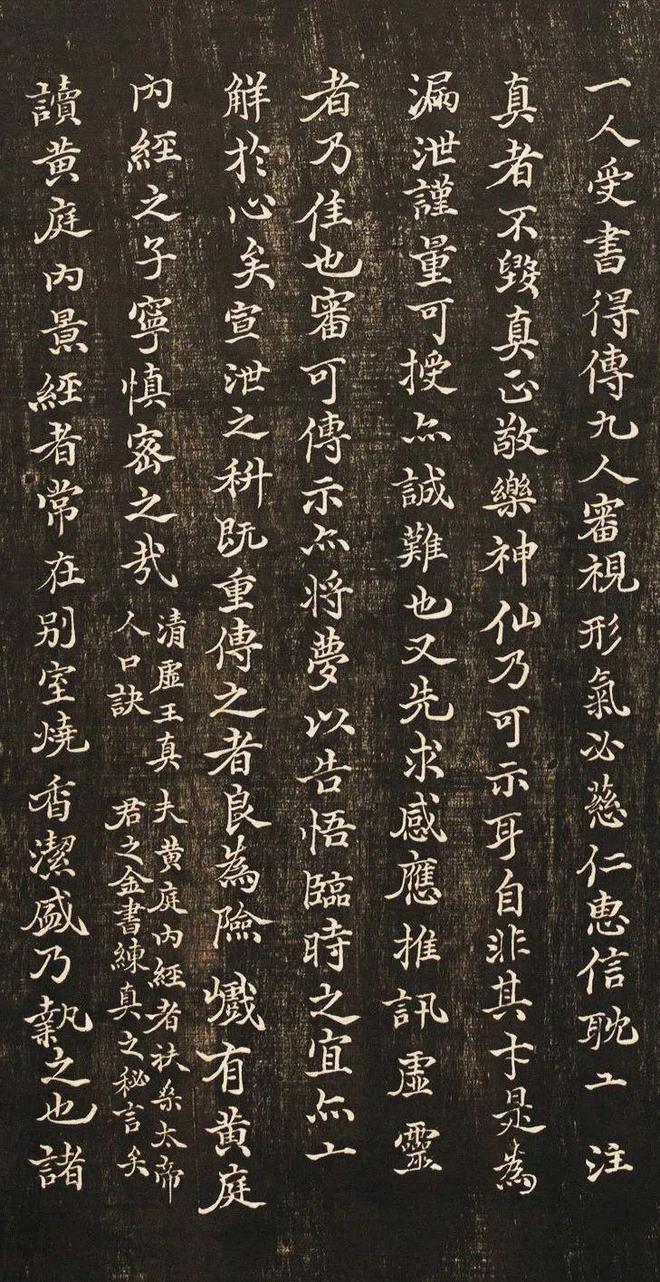 一人受書得傳九人審視形氣必慈仁惠信耽亠注
真者不毀真正敬樂神仙乃可示耳自非其卞是為
漏泄謹量可授亦誠難也又先求感應推訊虛靈
者乃佳也審可傳示亦将夢以告悟臨時之宜亦亠
解於心矣宣泄之科既重傳之者良為險巇有黃庭
內經之子寧慎密之哉
清虛王真
人口訣
夫黃庭內經者扶桑太帝
君之金書練真之秘言矣
讀黃庭內景經者常在別室燒香潔盛乃執之也諸